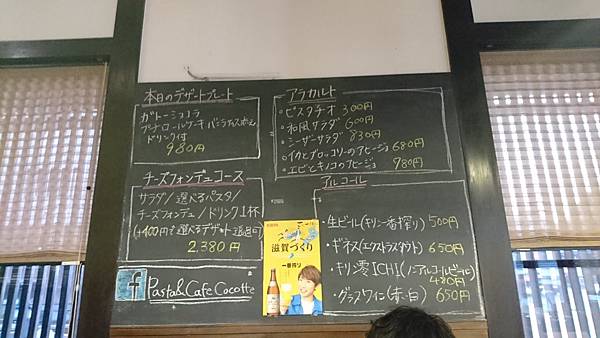 本日のデザートプレート
ガトーショコラ
プチロールケーキ バニラアイス添え
ドリンク付
980円
アラカルト
・ピスタチオ 300円
・和風サラダ 600円
・シーザーサラダ 830円
・イカとブロッコリーのアヒージョ 680円
・エビとキノコのアヒージョ 980円
チーズフォンデュコース
サラダ/選べるパスタ/
チーズフォンデュ/ドリンク1杯
(+400円で選べるデザート追加可)
2,380円
f Pasta&Cafe Cocotte
滋賀づくり
一番搾り
アルコール
・生ビール(キリン一番搾り) 500円
・ギネス(エクストラスタウト) 650円
・キリン零ICHI(ノンアルコールビール)
480円
・グラスワイン(赤・白) 650円